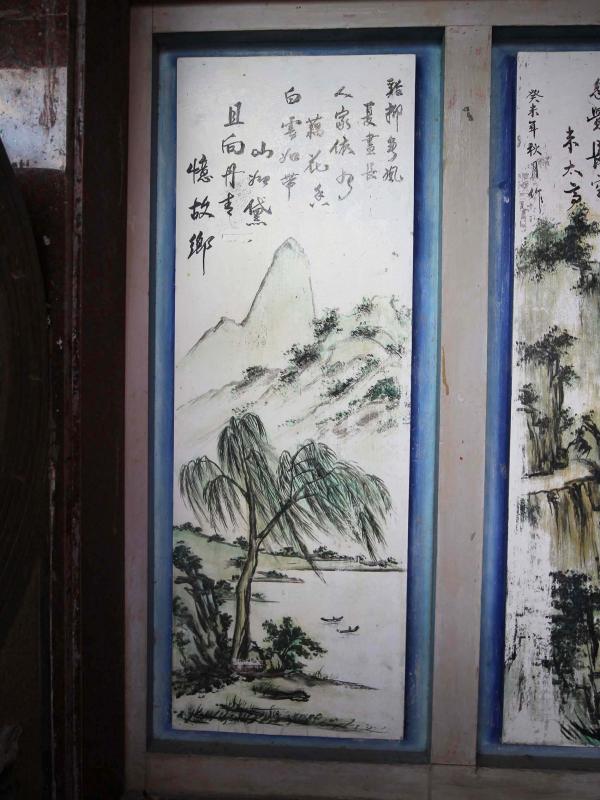 覺長空
未太高
癸未年秋月作
柳風
夏晝長
人家依水
藕花香
白雲如帶
山如黛
且向丹青
憶故鄉